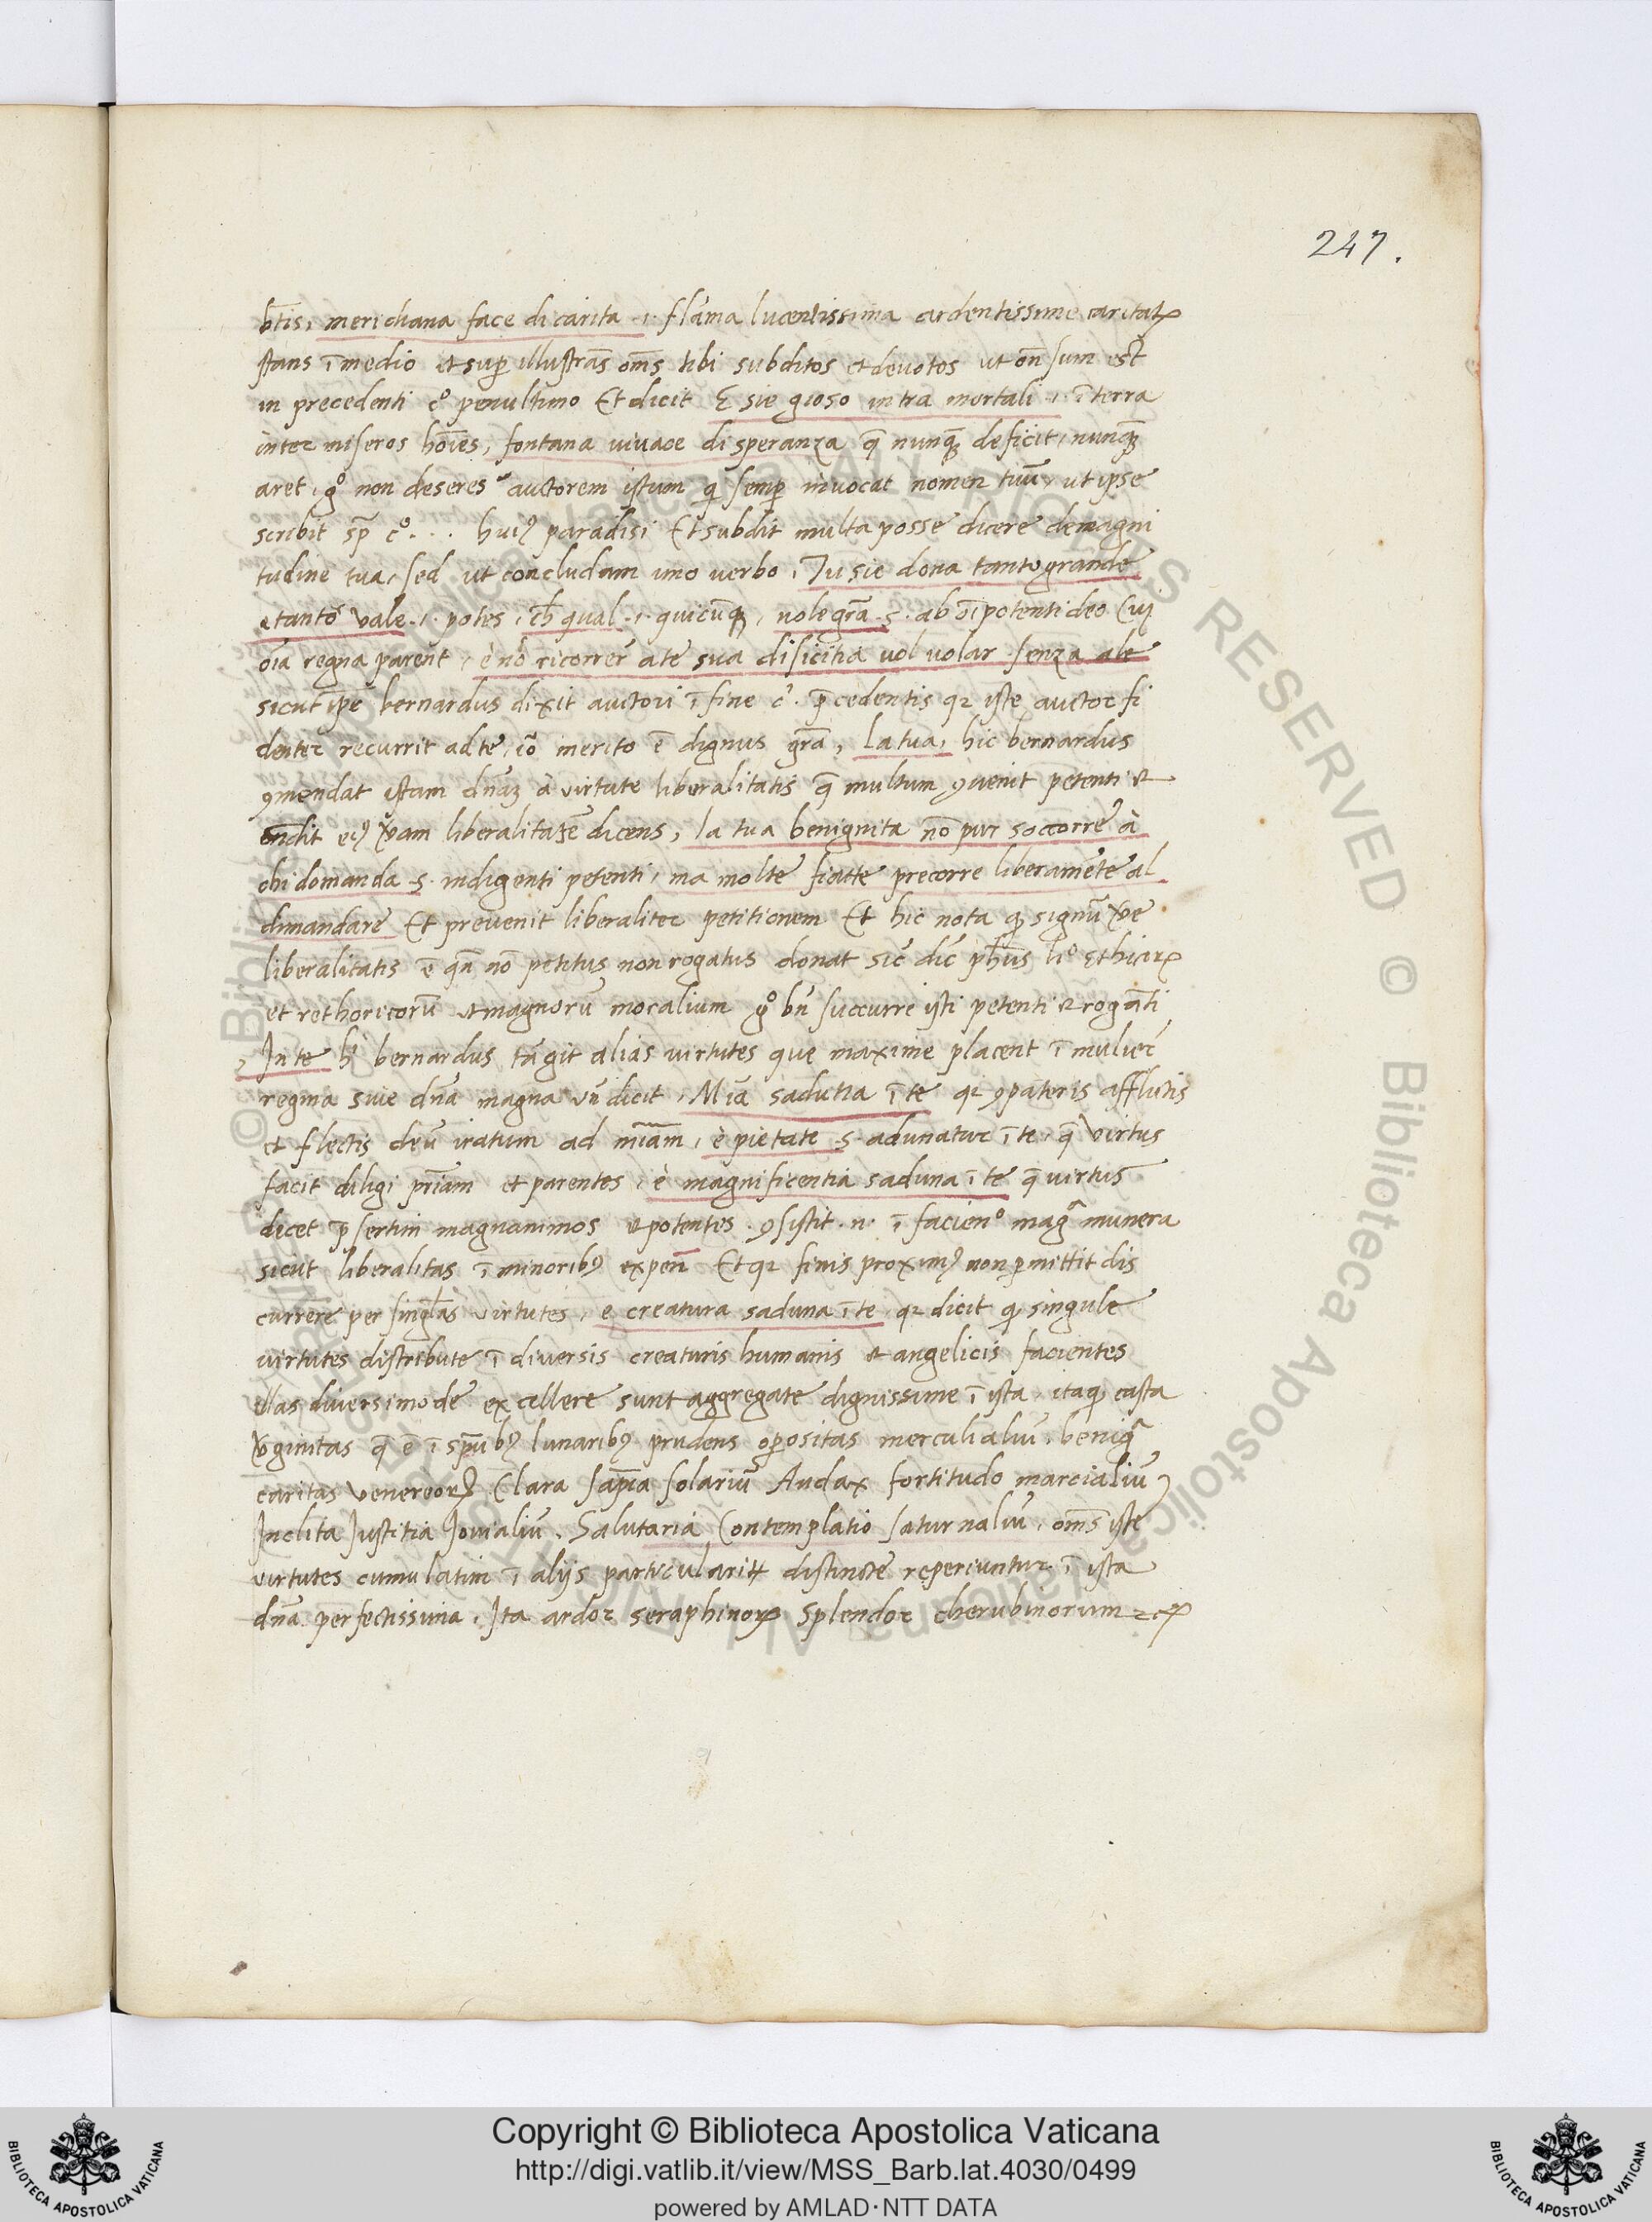 247.
btis, meridiana face di carita .i. flāma lucentissima ardentissime caritatꝝ
stans ī medio et suꝑ illustrās om̄s tibi subditos et devotos ut on̄sum est
in precedenti c° penultimo Et dicit E sie gioso intra mortali .i. ī terra
inter miseros hōies, fontana vivace di speranza q̄ nunqꝫ deficit, nunqꝫ
aret, g° non deseres auctorem istum qi semꝑ invocat nomen tuū, ut ipse
scribit sp̄ c° . . . huiꝰ paradisi Et subdit multa posse dicere de magni
tudine tua, sed ut concludam uno verbo, Tu sie dona tanto grande
e tanto vale .i. potes, ch̄ qual .i. quicūqꝫ, vole gr̄a .s. ab oīpotenti deo Cui
oīa regna parent, è nō ricorrer ate sua disicitia vol volar senza ale
sicut ip̄e bernardus dixit auctori ī fine c̄. p̄cedentis qꝛ iste auctor fi
denter recurrit ad te, iō merito ē dignus gr̄a, La tua, hic bernardus
ꝯmendat istam dn̄aꝫ à virtute liberalitatis q̄ multum ꝯvenit petenti et
on̄dit eiꝰ v̄am liberalitatē dicens, la tua benignita nō pur soccorre à
chi domanda .s. indigenti petenti, ma molte fiatte precorre liberamēte al
dimandare Et prevenit liberaliter petitionem Et hic nota ꝙ signū v̄e
liberalitatis ē qn̄ nō petitus non rogatus donat sic̄ dic̄ ph̄us li° Ethicoꝝ
et rethoricorū et magnorū moralium g° bn̄ succurre isti petenti et rogāti
, In te hi bernardus tāgit alias virtutes que maxime placent ī mulier̄
regina sive dn̄a magna un̄ dicit, Mīa sadutia ī te qꝛ ꝯpateris afflictis
et flectis deū iratum ad mīam, è pietate .s. adunatur ī te, q̄ virtus
facit diligi pr̄iam et parentes, è magnificentia saduna ī te q̄ virtus
decet p̄sertim magnanimos et potentes. ꝯsistit .n. ī facien° magᵃ munera
sicut liberalitas ī minoribꝰ expen̄ Et qꝛ finis proximꝰ non ꝑmittit dis
currere per singlas virtutes, e creatura saduna ī te qꝛ dicit ꝙ singule
virtutes distribute ī diversis creaturis humanis et angelicis facientes
illas diversimode excellere sunt aggregate dignissime ī ista, itaqꝫ casta
v̄ginitas q̄ ē ī sp̄ubꝰ lunaribꝰ prudens oꝑositas merculialiū. beniqᵃ
caritas venereorꝝ Clara sap̄ia solariū Audax fortitudo marcialiū
Inclita Justitia Jovialiū. Salutaria Contemplatio saturnaliū, om̄s iste
virtutes cumulatim ī alijs particularitꝉ distincte reperiuntur ī ista
dn̄a perfectissima. Ita ardor seraphinoꝝ Splendor cherubinorum
© Biblioteca Apostolica Vaticana ALL RIGHTS RESERVED
Copyright © Biblioteca Apostolica Vaticana
http://digi.vatlib.it/view/MSS_Barb.lat.4030/0499
powered by AMLAD·NTT DATA
BIBLIOTECA APOSTOLICA VATICANA
BIBLIOTECA APOSTOLICA VATICANA